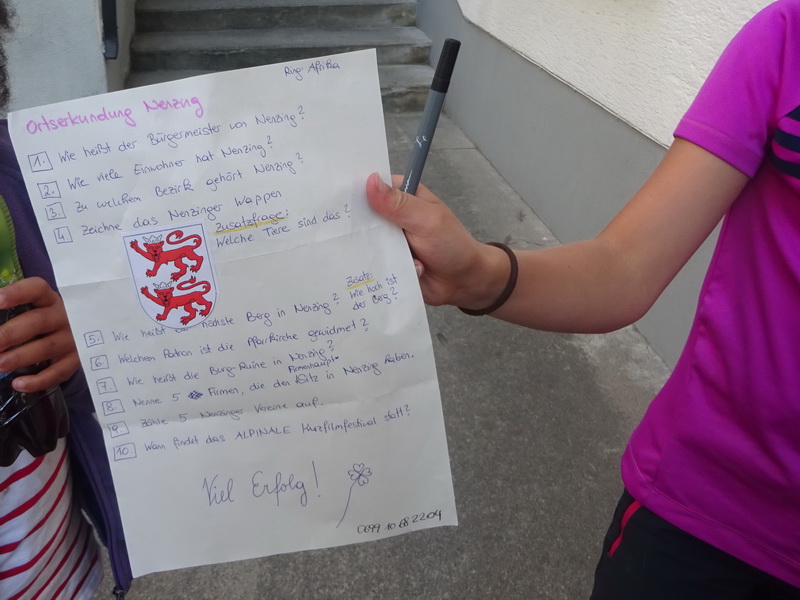 Ring: Afrika
Ortserkundung Nenzing
1. Wie heißt der Bürgermeister von Nenzing?
2. Wie viele Einwohner hat Nenzing?
3. Zu welchem Bezirk gehört Nenzing?
4. Zeichne das Nenzinger Wappen
Zusatzfrage:
Welche Tiere sind das?
5. Wie heißt der höchste Berg in Nenzing?
Zusatz:
Wie hoch ist
der Berg?
6. Welchem Patron ist die Pfarrkirche gewidmet?
7. Wie heißt die Burg-Ruine in Nenzing?
8. Nenne 5 Firmen, die den Firmenhauptsitz in Nenzing haben.
9. Zähle 5 Nenzinger Vereine auf.
10. Wann findet das ALPINALE Kurzfilmfestival statt?
Viel Erfolg!
0699 10 68 22 04